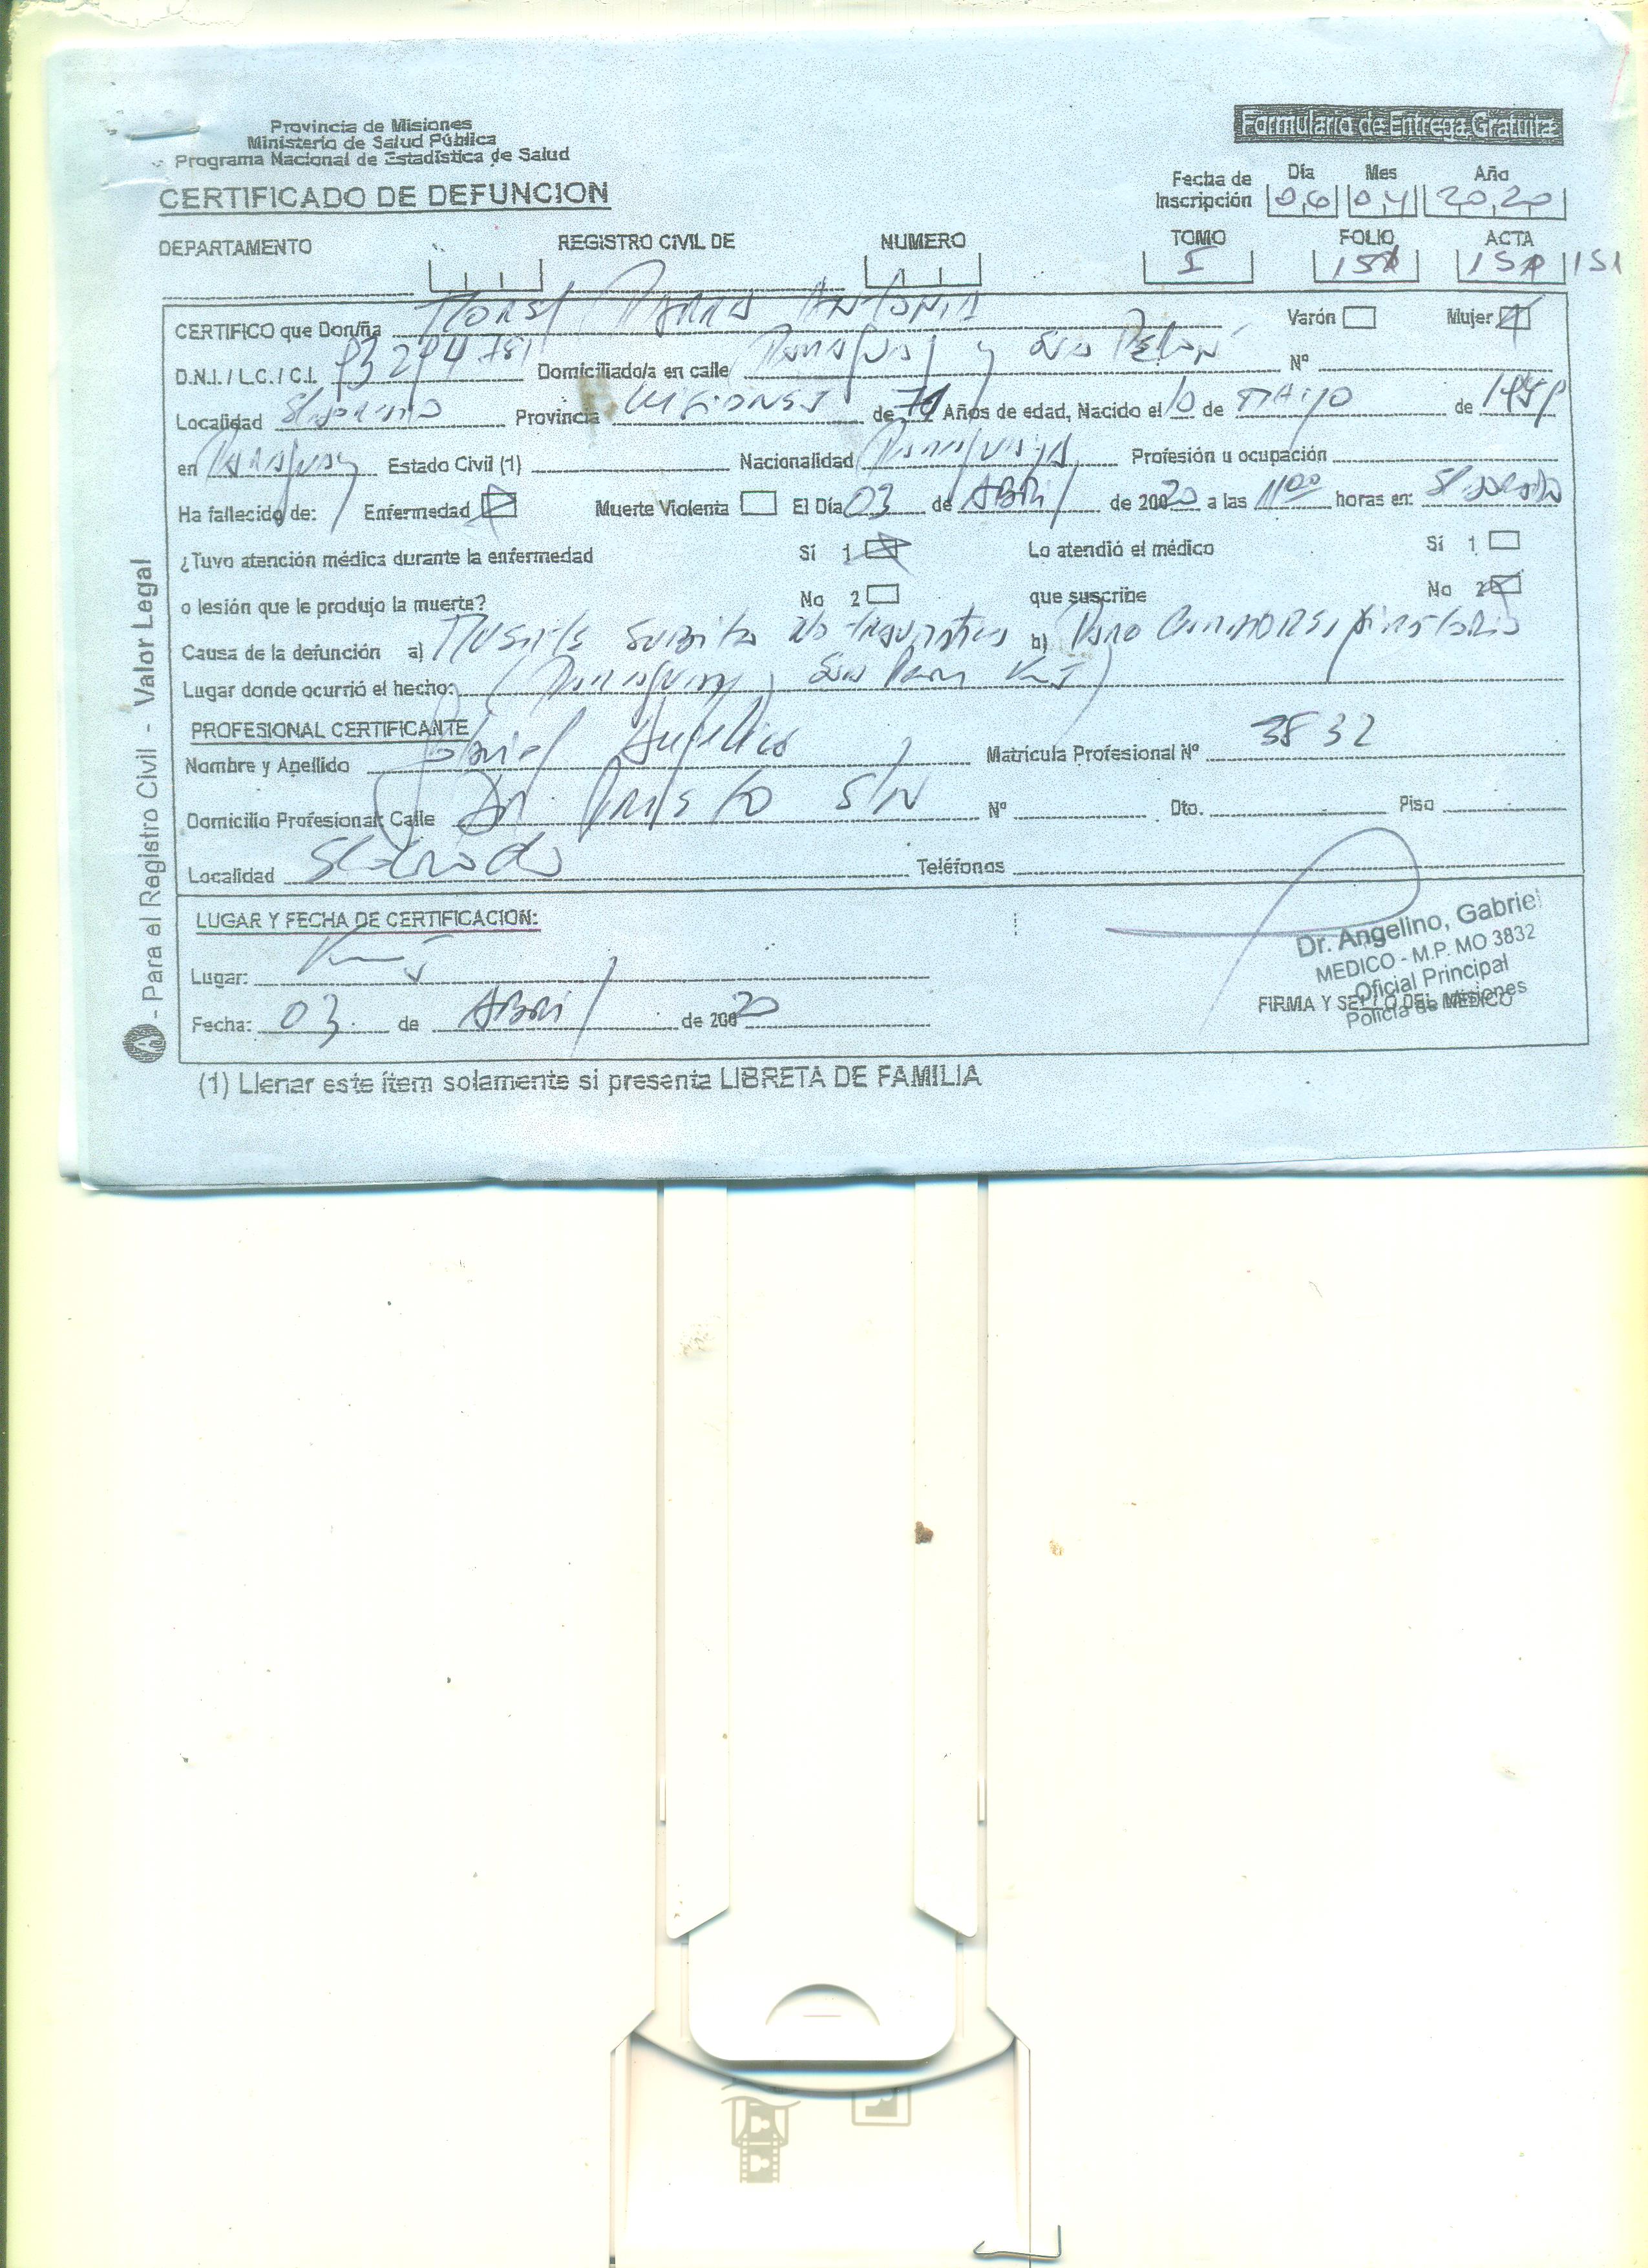 Provincia de Misiones
Ministerio de Salud Pública
Programa Nacional de Estadística de Salud
CERTIFICADO DE DEFUNCION
Formulario de Entrega Gratuita
Fecha de Inscripción Día 06 Mes 04 Año 2020
DEPARTAMENTO REGISTRO CIVIL DE NUMERO TOMO I FOLIO ACTA 151
CERTIFICO que Don/ña Antonia Varón Mujer
D.N.I. / L.C. / C.I. Domiciliado/a en calle Paraguay y Nº
Localidad Eldorado Provincia Misiones de Años de edad, Nacido el 10 de Mayo de
en Paraguay Estado Civil (1) Nacionalidad Paraguaya Profesión u ocupación
Ha fallecido de: Enfermedad Muerte Violenta El Día 03 de Abril de 200 20 a las 11 00 horas en: Eldorado
¿Tuvo atención médica durante la enfermedad Sí 1 Lo atendió el médico Sí 1
o lesión que le produjo la muerte? No 2 que suscribe No 2
Causa de la defunción a) Muerte Subita No traumatica b) Paro Cardiorespiratorio
Lugar donde ocurrió el hecho: (Paraguay y
PROFESIONAL CERTIFICANTE
Nombre y Apellido Gabriel Angelino Matrícula Profesional Nº 3832
Domicilio Profesional: Calle S/N Nº Dto. Piso
Localidad Eldorado Teléfonos
LUGAR Y FECHA DE CERTIFICACION:
Lugar:
Fecha: 03 de Abril de 200 20
Dr. Angelino, Gabriel
MEDICO - M.P. MO 3832
Oficial Principal
Policía de Misiones
FIRMA Y SELLO DEL MEDICO
(1) Llenar este ítem solamente si presenta LIBRETA DE FAMILIA
- Para el Registro Civil - Valor Legal